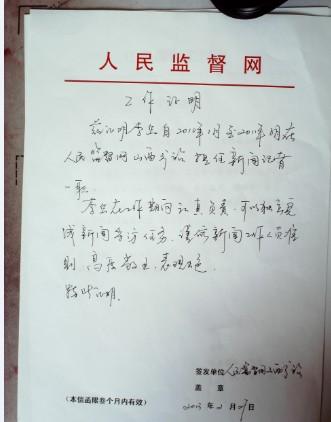 人民监督网
工作证明
兹证明李 自201 年 月至201 年 月在
人民监督网山西 站 担任新闻记者
一职。
李 在工作期间认真负责,可以独立完
成新闻采访任务,谨依新闻工作人员准
则,高度敬业,表现 。
特此证明。
签发单位:人民监督网山西 站
盖 章
2013 年 2 月 日
(本信函限叁个月内有效)